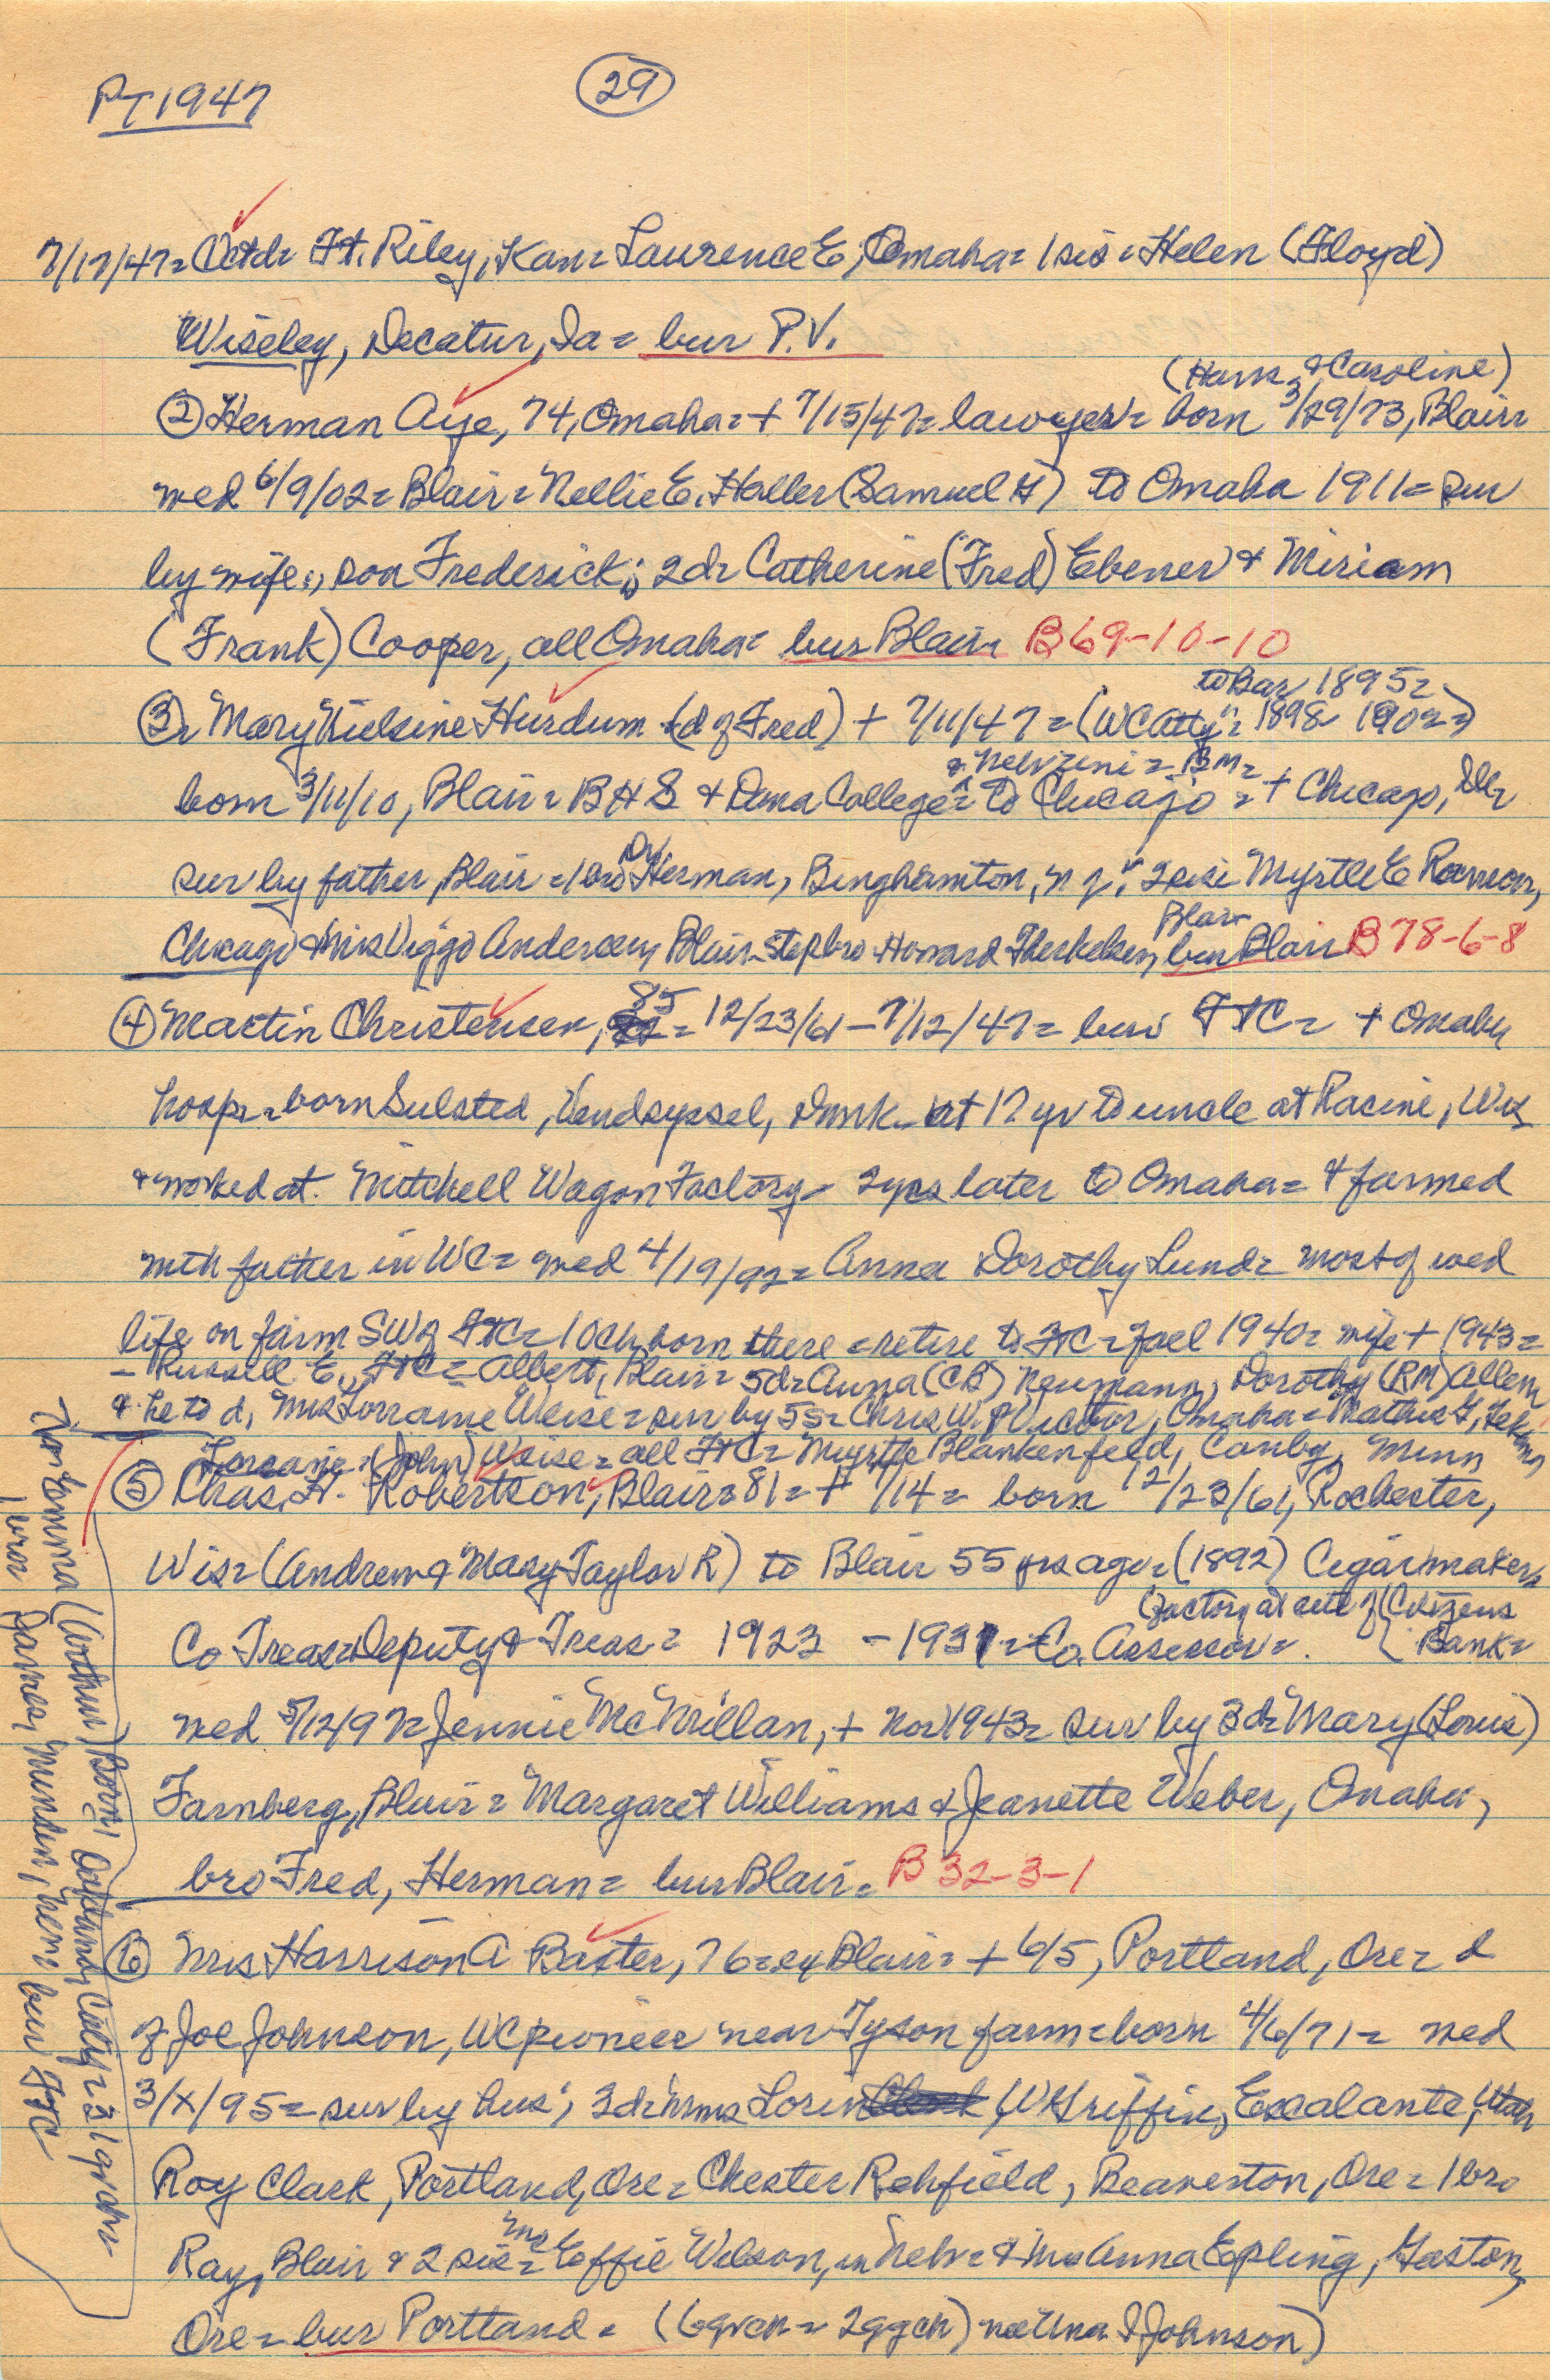 PT 1947
29
7/17/47= Octd= Ft. Riley, Kan= Laurence E, Omaha= 1 sis= Helen (Floyd)
Wiseley, Decatur, Ia= bur P.V.
(Hans & Caroline)
② Herman Aye, 74, Omaha= + 7/15/47= lawyer= born 3/29/73, Blair=
wed 6/9/02= Blair= Nellie E. Haller (Samuel H) to Omaha 1911= sur
by wife, son Frederick; 2d= Catherine (Fred) Ebener & Miriam
(Frank) Cooper, all Omaha= bur Blair= B69-10-10
to Bar 1895=
③= Mary Nielsine Hurdum (d of Fred) + 7/11/47= (WC Atty= 1898 1902=)
& Nebr Uni= BM=
born 3/11/10, Blair= BHS & Dana College= to Chicago= + Chicago, Ill=
Dr
sur by father, Blair= 1 bro Herman, Binghamton, NY; 2 sis Myrtle E
Blair
Chicago & Mrs Viggo Andersen, Blair= stepbro Howard Therkelsen, bur Blair B78-6-8
④ Martin Christensen, 85= 12/23/61-7/12/47= bur FtC= + Omaha
hosp= born Sulsted, Vendsyssel, Dmk= at 17 yr to uncle at Racine, Wis
& worked at Mitchell Wagon Factory= 2yrs later to Omaha= & farmed
with father in WC= wed 4/19/92= Anna Dorothy Lund= most of wed
life on farm SW of FtC= 10 ch born there= retire to FtC= 1940= wife + 1943=
- Russell E., FtC= Albert, Blair= 5d= Anna (CB) Neumann, Dorothy (RM) Allen
& he to d, Mrs Lorraine Weise= sur by 5s= Chris W. & Victor, Omaha= Mathis G,
Loraine (John) Weise= all FtC= Myrtle Blankenfeld, Canby, Minn
⑤ Chas. H. Robertson, Blair= 81= + 7/14= born 12/23/61, Rochester,
Wis= (Andrew & Mary Taylor R) to Blair 55 yrs ago= (1892) Cigarmaker=
(factory at site of Citizens
Co Treas= Deputy & Treas= 1923 - 1931= Co. Assessor=. Bank=
wed 5/12/97= Jennie McMillan, + Nov 1943= sur by 3d= Mary (Louis)
Farnberg, Blair= Margaret Williams & Jeanette Weber, Omaha,
bro Fred, Herman= bur Blair= B 32-3-1
⑥ Mrs Harrison A Baxter, 76= ex Blair= + 6/5, Portland, Ore= d
of Joe Johnson, WC pioneer near Tyson farm= born 4/6/71= wed
3/x/95= sur by hus; 3d= Mrs Loren W Griffin, Escalante, Utah
Roy Clark, Portland, Ore= Chester Rehfield, Beaverton, Ore= 1 bro
Mrs
Ray, Blair & 2 sis= Effie Wilson, in Nebr= & Mrs Anna Epling, Gaston,
Ore= bur Portland= (6 grch= 2 ggch) nee Una I Johnson)
Emma (Arthur) Born, Oakland, Calif= 31 grch=
1 bro= James, Minden, Nebr bur FtC